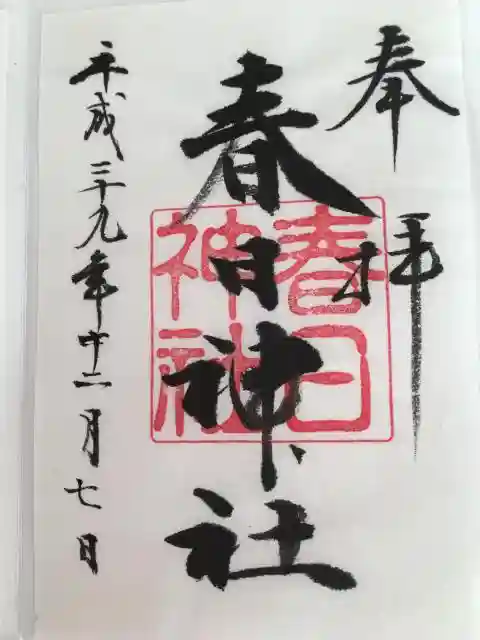 奉拝
春日神社
春日
神社
平成二十九年十二月七日